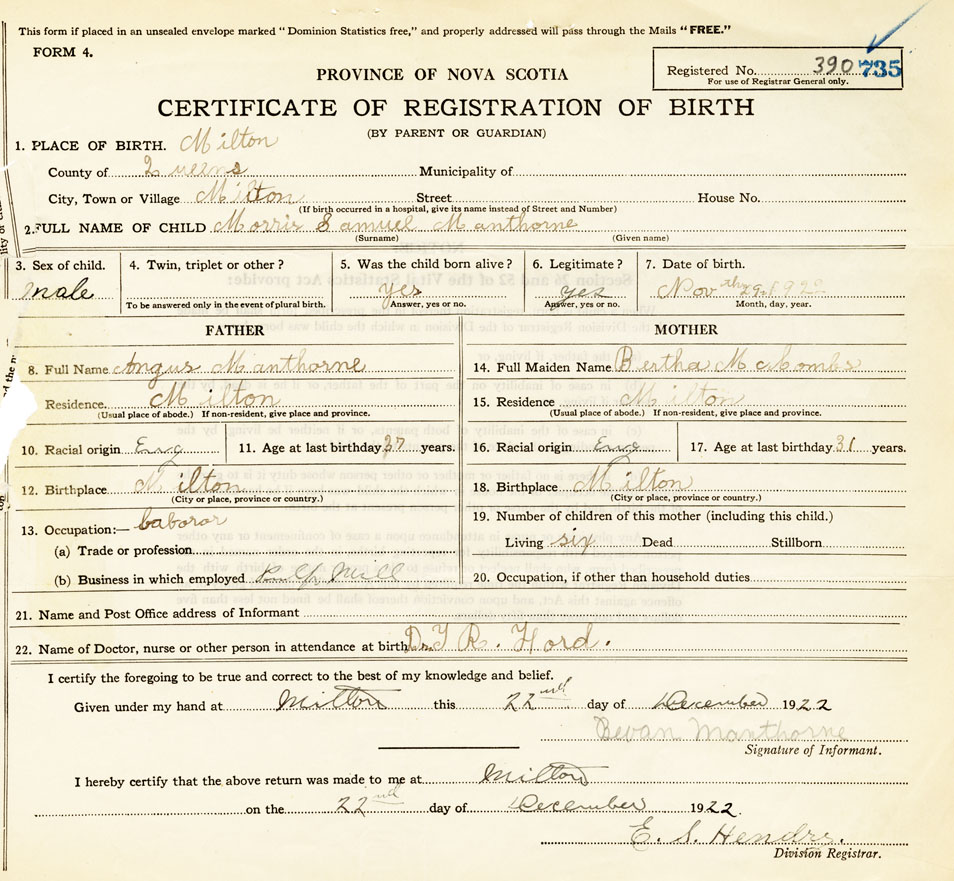 This form if placed in an unsealed envelope marked "Dominion Statistics free," and properly addressed will pass through the Mails "FREE."
FORM 4.
PROVINCE OF NOVA SCOTIA
Registered No. 390 735
For use of Registrar General only.
CERTIFICATE OF REGISTRATION OF BIRTH
(BY PARENT OR GUARDIAN)
1. PLACE OF BIRTH. Milton
County of Queens Municipality of
City, Town or Village Milton Street House No.
(If birth occurred in a hospital, give its name instead of Street and Number)
2. FULL NAME OF CHILD Morris Samuel Manthorne
(Surname) (Given name)
3. Sex of child. 4. Twin, triplet or other? 5. Was the child born alive? 6. Legitimate? 7. Date of birth.
male yes yes Nov 29th 1922
To be answered only in the event of plural birth. Answer, yes or no. Answer, yes or no. Month, day, year.
FATHER MOTHER
8. Full Name Angus Manthorne 14. Full Maiden Name Bertha McCombs
Residence Milton 15. Residence Milton
(Usual place of abode.) If non-resident, give place and province. (Usual place of abode.) If non-resident, give place and province.
10. Racial origin Eng 11. Age at last birthday 37 years. 16. Racial origin Eng 17. Age at last birthday 31 years.
12. Birthplace Milton 18. Birthplace Milton
(City or place, province or country.) (City or place, province or country.)
13. Occupation:— Laboror 19. Number of children of this mother (including this child.)
(a) Trade or profession Living six Dead Stillborn
(b) Business in which employed Mill 20. Occupation, if other than household duties
21. Name and Post Office address of Informant
22. Name of Doctor, nurse or other person in attendance at birth Dr. R. Ford.
I certify the foregoing to be true and correct to the best of my knowledge and belief.
Given under my hand at Milton this 22nd day of December 1922
Bevan Manthorne
Signature of Informant.
I hereby certify that the above return was made to me at Milton
on the 22nd day of December 1922.
E. S. Hendrs.
Division Registrar.